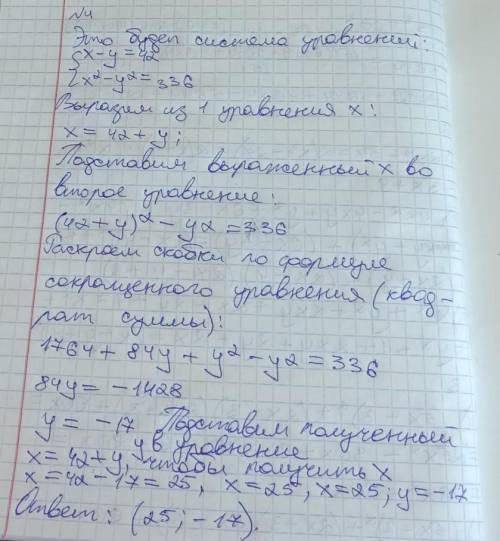 №4
Это будет система уравнений:
{x-y=42
{x²-y²=336
Выразим из 1 уравнения x:
x=42+y;
Подставим выраженный x во
второе уравнение:
(42+y)²-y²=336
Раскроем скобки по формуле
сокращенного уравнения (квад-
рат суммы):
1764+84y+y²-y²=336
84y=-1428
y=-17 Подставим полученный
y в уравнение
x=42+y, чтобы получить x
x=42-17=25, x=25, x=25; y=-17
Ответ: (25;-17).